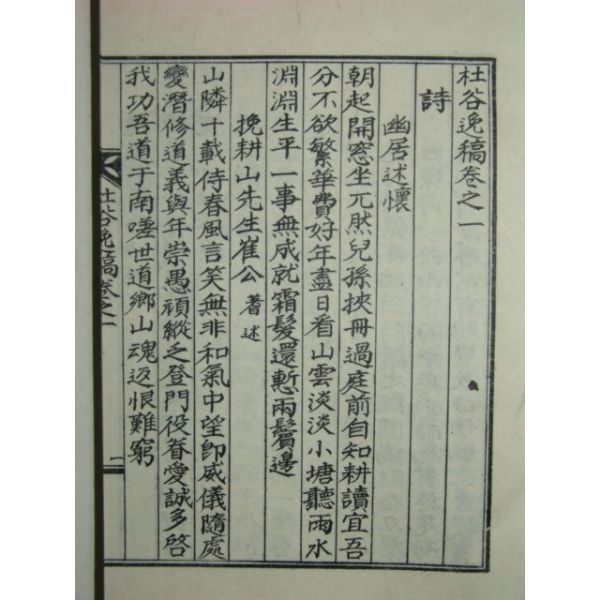 杜谷逸稿卷之一
詩
幽居述懷
朝起開窓坐兀然兒孫挾冊過庭前自知耕讀宜吾
分不欲繁華費好年盡日看山雲淡淡小塘聽雨水
淵淵生平一事無成就霜髮還慙兩鬢邊
挽耕山先生崔公著述
山隣十載侍春風言笑無非和氣中望卽威儀隨處
變潛修道義與年崇愚頑縱之登門役眷愛誠多啓
我功吾道于南嗟世道鄉山魂返恨難窮
杜谷逸稿卷之一
一